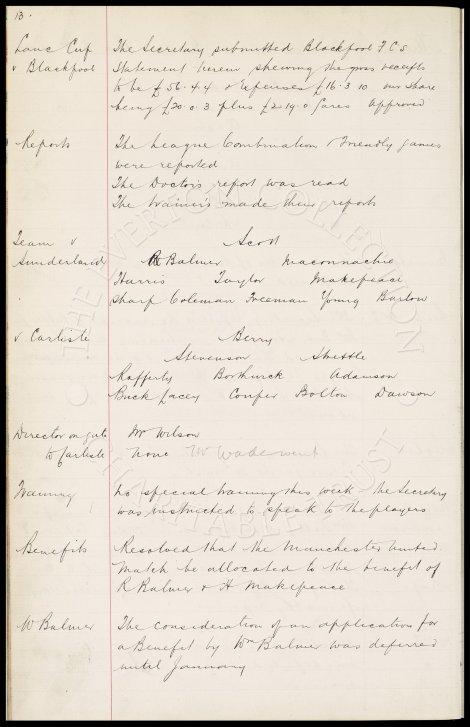 13.
Lanc Cup The Secretary submitted Blackpool F C s
v Blackpool Statement herein shewing the gross receipts
to be £56.4.4 & Expenses £16.3.10 our share
being £20.0.3 plus £2.19.0 fares Approved
Reports The League Combination & Friendly games
were reported
The Doctor's report was read
The trainer's made their reports
Team v Scott
Sunderland R Balmer Maconnachie
Harris Taylor Makepeace
Sharp Coleman Freeman Young Barlow
v Carlisle Berry
Stevenson Strettle
Rafferty Borthwick Adamson
Buck Lacey Couper Bolton Dawson
Director on gate Mr Wilson
to Carlisle none Mr Wade went
Training no special training this week the Secretary
was instructed to speak to the players
Benefits Resolved that the Manchester United
Match be allocated to the benefit of
R Balmer & H Makepeace
W Balmer The consideration of an application for
a Benefit by Wm Balmer was deferred
until January
THE EVERTON COLLECTION
CHARITABLE TRUST